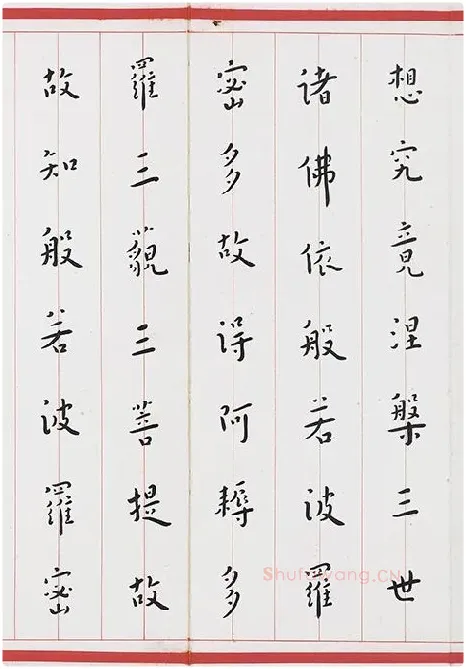 想究竟涅槃三世
諸佛依般若波羅
蜜多故得阿耨多
羅三藐三菩提故
故知般若波羅蜜
Shufawang.CN